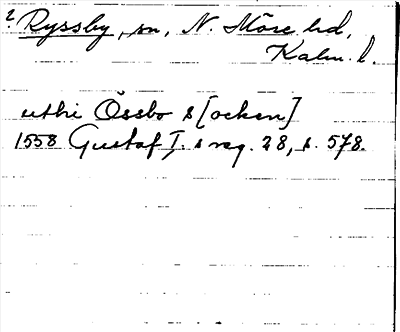 ? Ryssby, sn, N. Möre hd,
Kalm. l.
uthi Össbo s[ocken]
1558 Gustaf I:s reg. 28, s. 578.